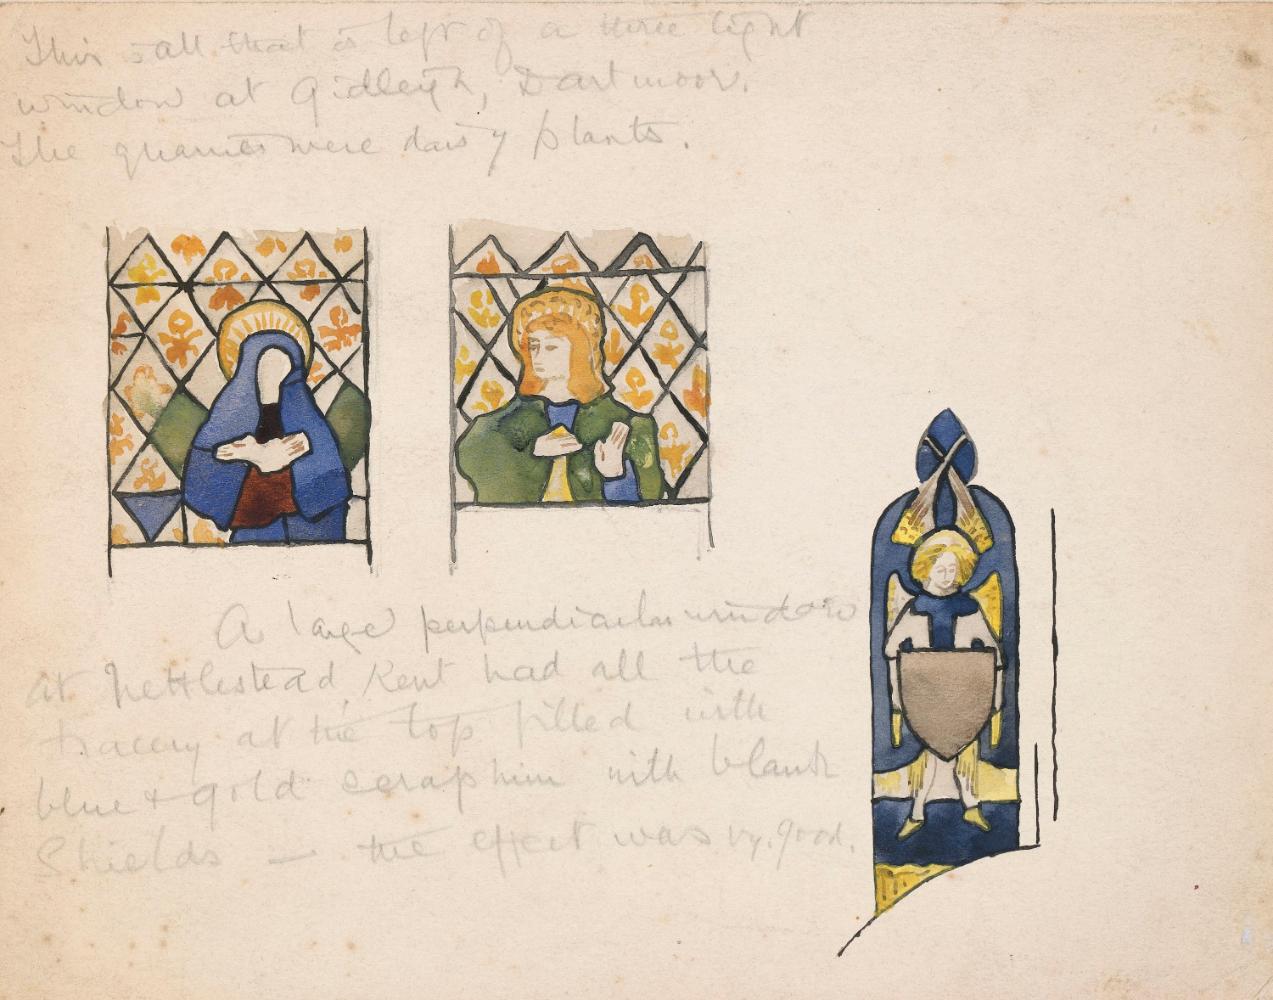 This is all that is left of a three light
window at Gidleigh, Dartmoor.
The quarries were daisy plants.
A large perpendicular window
at Nettlestead, Kent had all the
tracery at the top filled with
blue + gold seraphim with blank
Shields — the effect was vy. good.